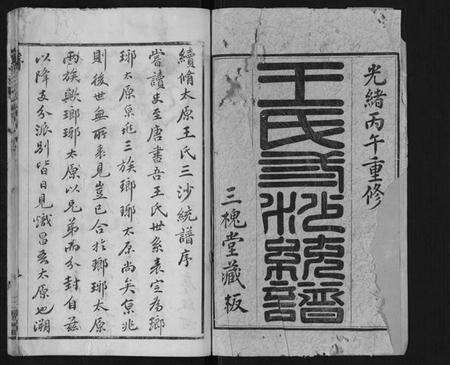 光緒丙午重修
王氏三沙統譜
三槐堂藏板
續脩太原王氏三沙統譜序
嘗讀史至唐書吾王氏世系表定為瑯
瑯太原京兆三族瑯瑯太原尚矣京兆
則後世無所表見豈已合於瑯瑯太原
兩族歟瑯瑯太原以兄弟而分封自茲
以降支分派別皆日見熾昌吾太原也溯